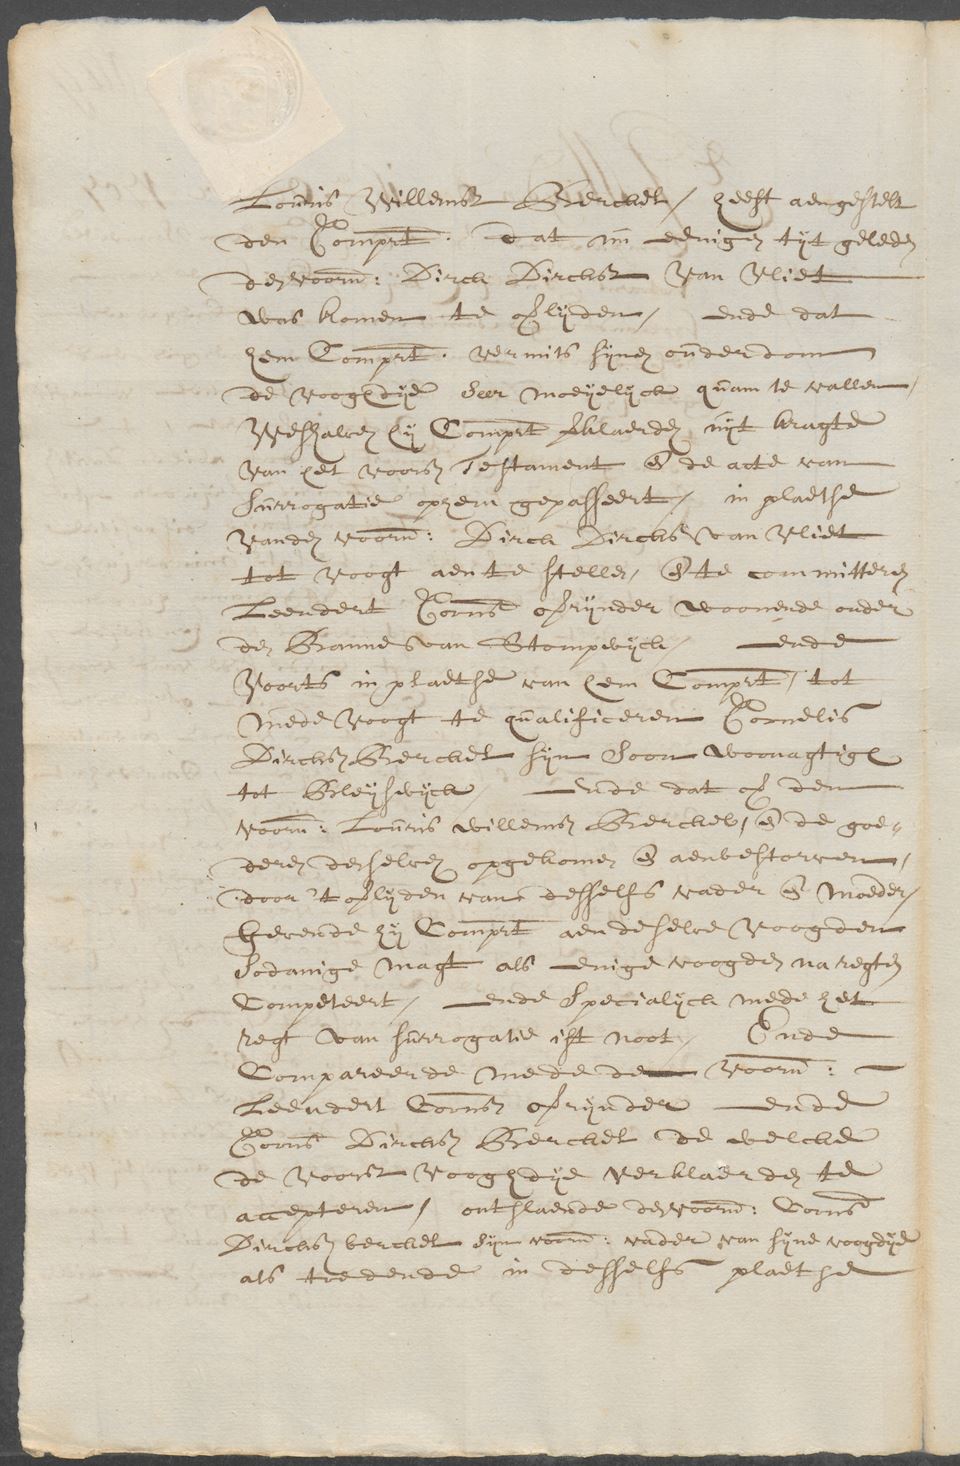 Louris Willemsz Berckel / heeft aengestelt
den Comprt. dat nu eenigen tyt geleden
de voorn: Dirck Dircksz van Vliet
was komen te oflyden / ende dat
hem Comprt. vermits sijnen ouderdom
de vooghdye seer moeyelyck quam te vallen /
Weshalven hy Comprt verklaerde uyt kragte
van het voorsz Testament & de acte van
Surrogatie op hem gepasseert / in plaetse
vanden voorn: Dirck Dircksz van Vliet
tot voogt aen te stellen / & te committeren
Leendert Corns ofrijnder woonende onder
den Banne van Stompwijck / ende
Voorts in plaetse van hem Comprt / tot
mede Voogt te qualificeren Cornelis
Dircksz Berckel sijn Soon woonagtigh
tot Bleyswijck / Ende dat of den
voorn: Louris Willemsz Berckel / & de goe-
deren deselven opgekomen & aenbestorven /
door 't oflyden van desselfs vader & Moeder /
Gevende hy Comprt aen deselve Voogden
Sodanige magt als eenige voogden na regten
Competeert / ende Specialyck mede het
regt van surrogatie ist noot / Ende
Compareerde mede de voorn:
Leendert Cornsz ofrijnder ende
Corns Dircksz Berckel de welcke
de voorsz vooghdye verklaerden te
accepteren / ontslaende de voorn: Corns
Dircksz berckel sijn voorn: vader van sijne voogdye
als tredende in desselfs plaetse